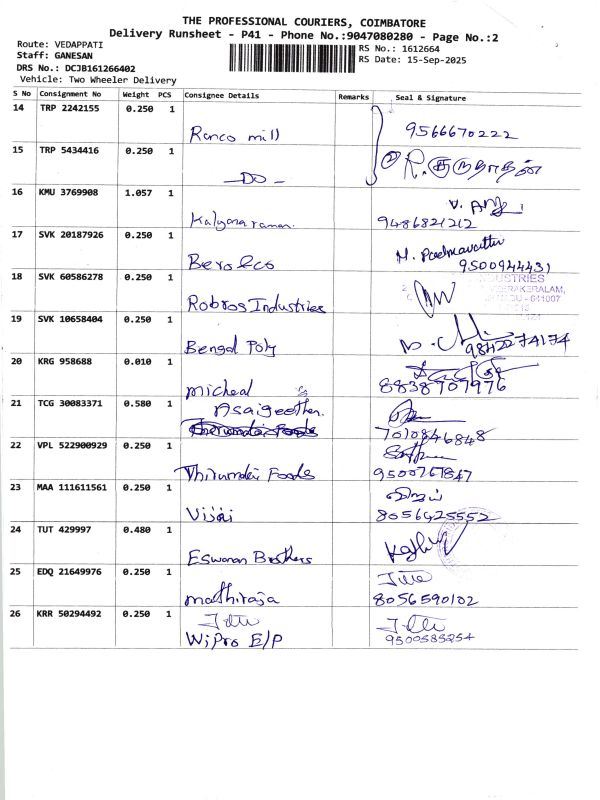 THE PROFESSIONAL COURIERS, COIMBATORE
Delivery Runsheet - P41 - Phone No.:9047080280 - Page No.:2
Route: VEDAPPATI
Staff: GANESAN
DRS No.: DCJB161266402
Vehicle: Two Wheeler Delivery
RS No.: 1612664
RS Date: 15-Sep-2025
S No Consignment No Weight PCS Consignee Details Remarks Seal & Signature
14 TRP 2242155 0.250 1
Ranco mill 9566670222
15 TRP 5434416 0.250 1
-DO-
16 KMU 3769908 1.057 1
Kalyana raman. 9486821212
17 SVK 20187926 0.250 1
M. Padmavathi
9500944431
18 SVK 60586278 0.250 1
Robros Industries
19 SVK 10658404 0.250 1
Bengal Poly 9842274174
20 KRG 958688 0.010 1
micheal 8838707976
21 TCG 30083371 0.580 1
7010846848
22 VPL 522900929 0.250 1
Thirumalai Foods 9500767847
23 MAA 111611561 0.250 1
விஜய்
Vijai 8056425552
24 TUT 429997 0.480 1
Eswaran Brothers
25 EDQ 21649976 0.250 1
mathiraja 8056590102
26 KRR 50294492 0.250 1
WiPro E/P 9500585254